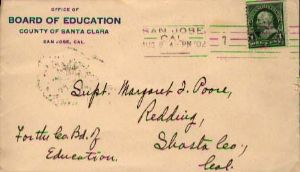 OFFICE OF
BOARD OF EDUCATION
COUNTY OF SANTA CLARA
SAN JOSE, CAL.
SAN JOSE,
CAL.
4-PM '02
1
Supt. Margaret I. Poore,
Redding,
Shasta Co.,
Cal.
For the Co. Bd. of
Education.